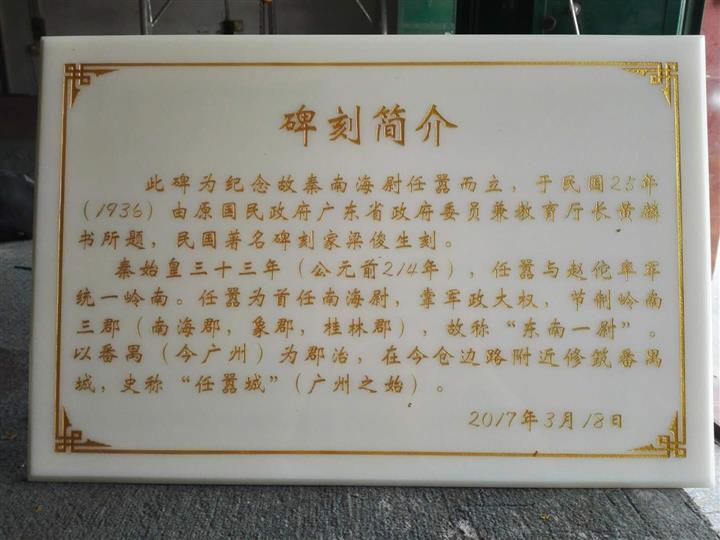 碑刻简介
此碑为纪念故秦南海尉任嚣而立，于民国25年
（1936）由原国民政府广东省政府委员兼教育厅长黄麟
书所题，民国著名碑刻家梁俊生刻。
秦始皇三十三年（公元前214年），任嚣与赵佗率军
统一岭南。任嚣为首任南海尉，掌军政大权，节制岭南
三郡（南海郡，象郡，桂林郡），故称“东南一尉”。
以番禺（今广州）为郡治，在今仓边路附近修筑番禺
城，史称“任嚣城”（广州之始）。
2017年3月18日